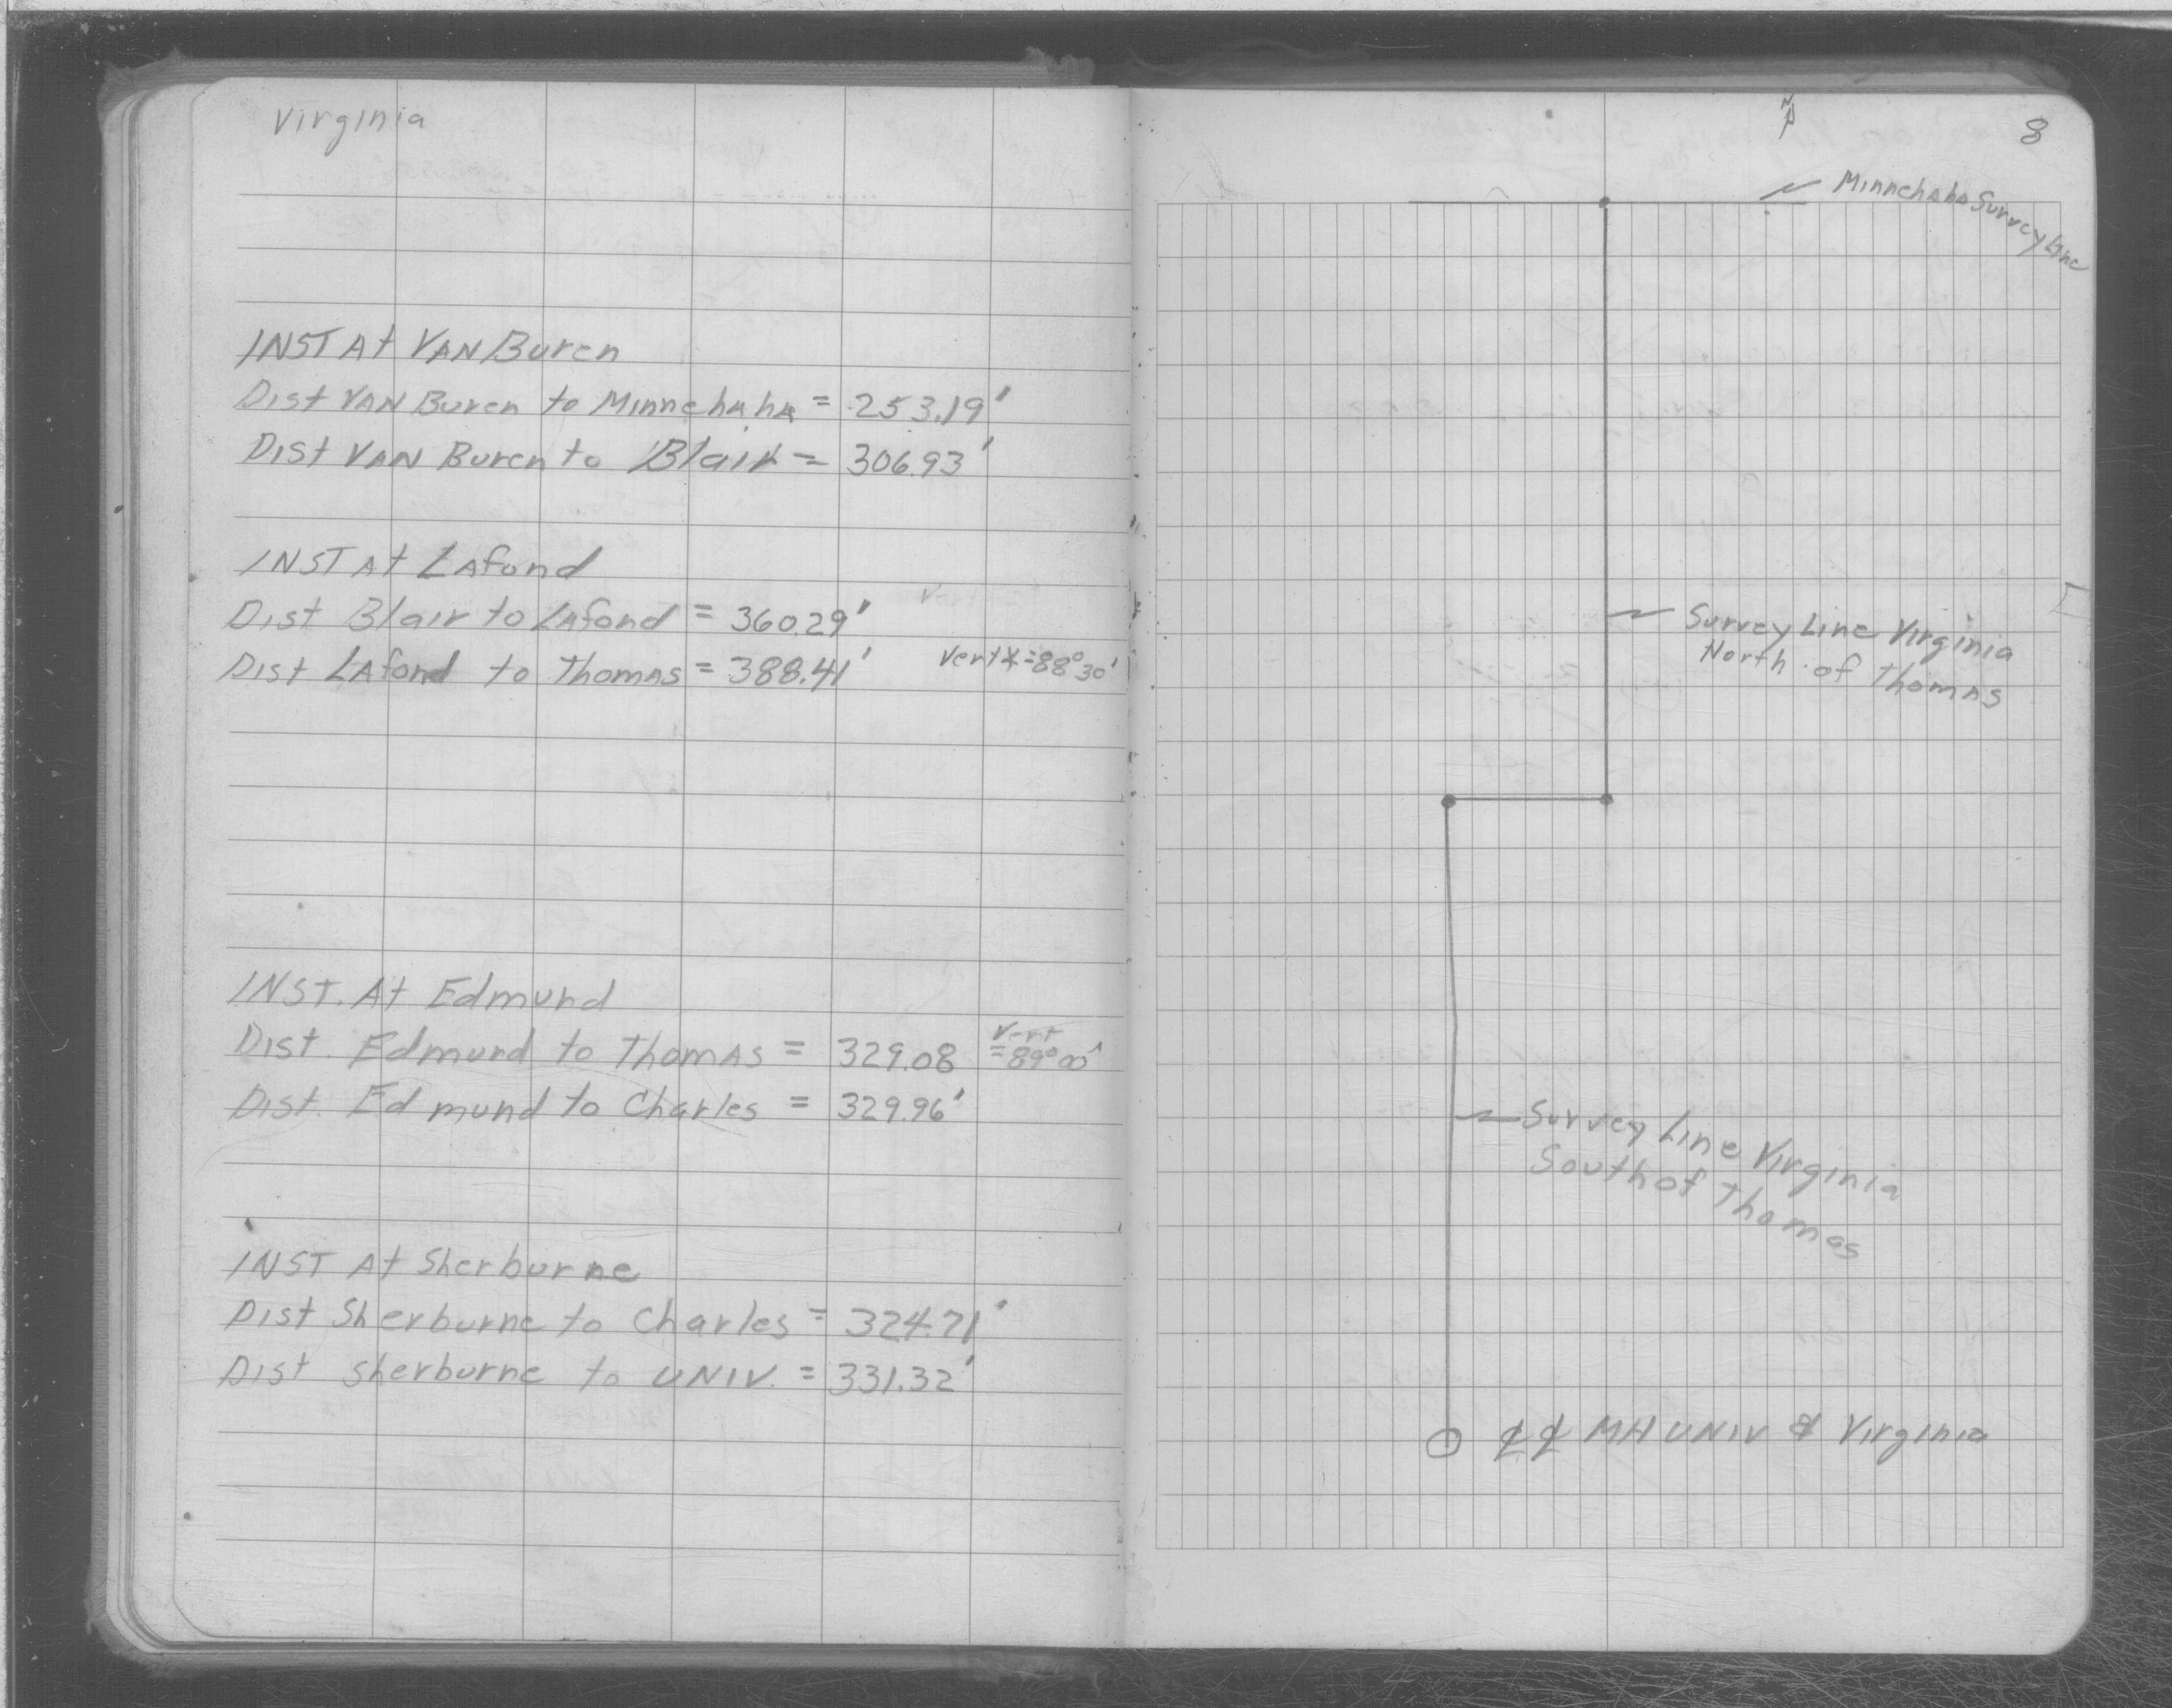 Virginia
INST At VAN Buren
Dist VAN Buren to Minnehaha = 253.19'
Dist VAN Buren to Blair = 306.93'
INST At Lafond
Dist Blair to Lafond = 360.29'
Dist Lafond to Thomas = 388.41' Vert∡=88°30'
INST. At Edmund
Dist Edmund to Thomas = 329.08 Vert
=89°00'
Dist. Edmund to Charles = 329.96'
INST At Sherburne
Dist Sherburne to Charles = 324.71'
Dist Sherburne to UNIV. = 331.32'
N
8
Minnehaha Survey Line
Survey Line Virginia
North of Thomas
Survey Line Virginia
South of Thomas
℄ ℄ MH UNIV & Virginia